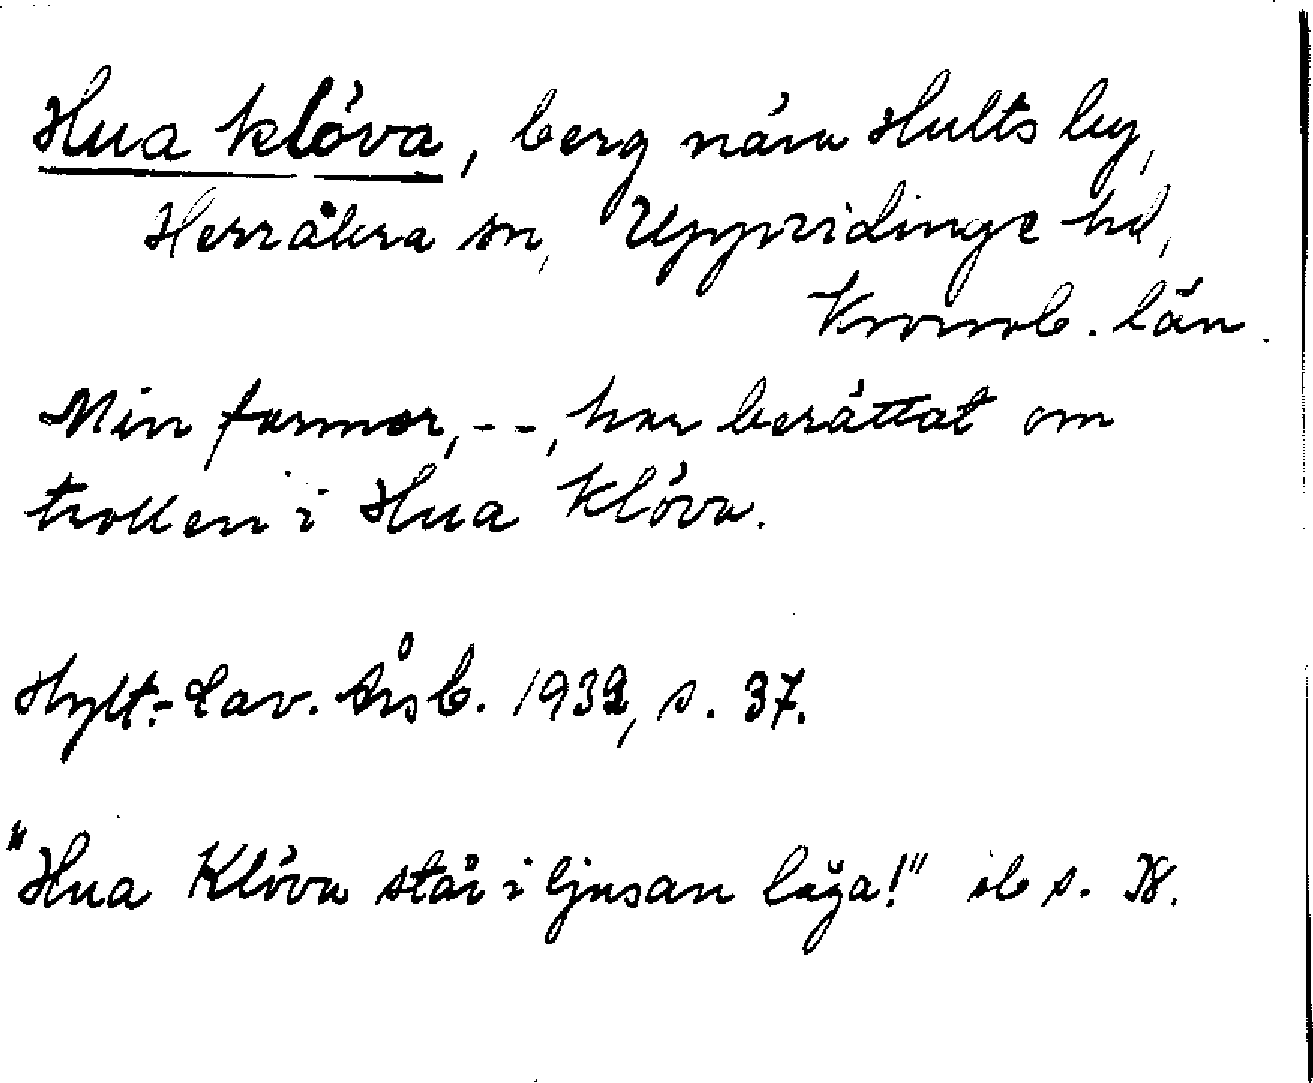 Hua klöva, berg nära Hults by,
Herråkra sn, Uppvidinge hd,
Kronob. län.
Min farmor, - -, har berättat om
trollen i Hua Klöva.
Hylt.-Cav. Årsb. 1932, s. 37.
"Hua Klöva står i ljusan låga!" ib s. 38.